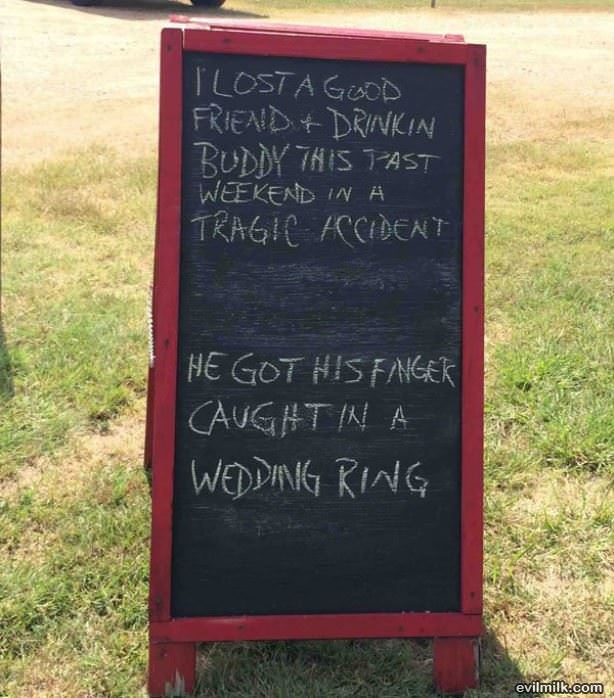 I LOST A GOOD
FRIEND + DRINKIN
BUDDY THIS PAST
WEEKEND IN A
TRAGIC ACCIDENT
HE GOT HIS FINGER
CAUGHT IN A
WEDDING RING
evilmilk.com